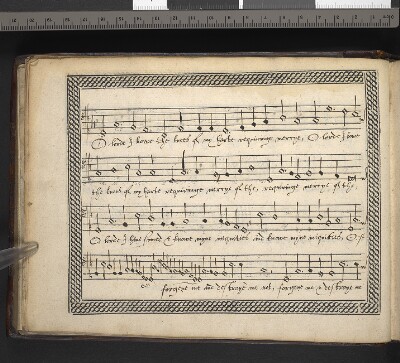 O lorde I bowe the knees of my harte requiringe mercye, O lorde I bow
the knees of my harte requiringe mercye of the, requiringe mercye of the,
O lorde I have sinned & knowe myne iniquities and knowe myne iniquities, O
forgeve me and destroye me not, forgeve me & destroye me